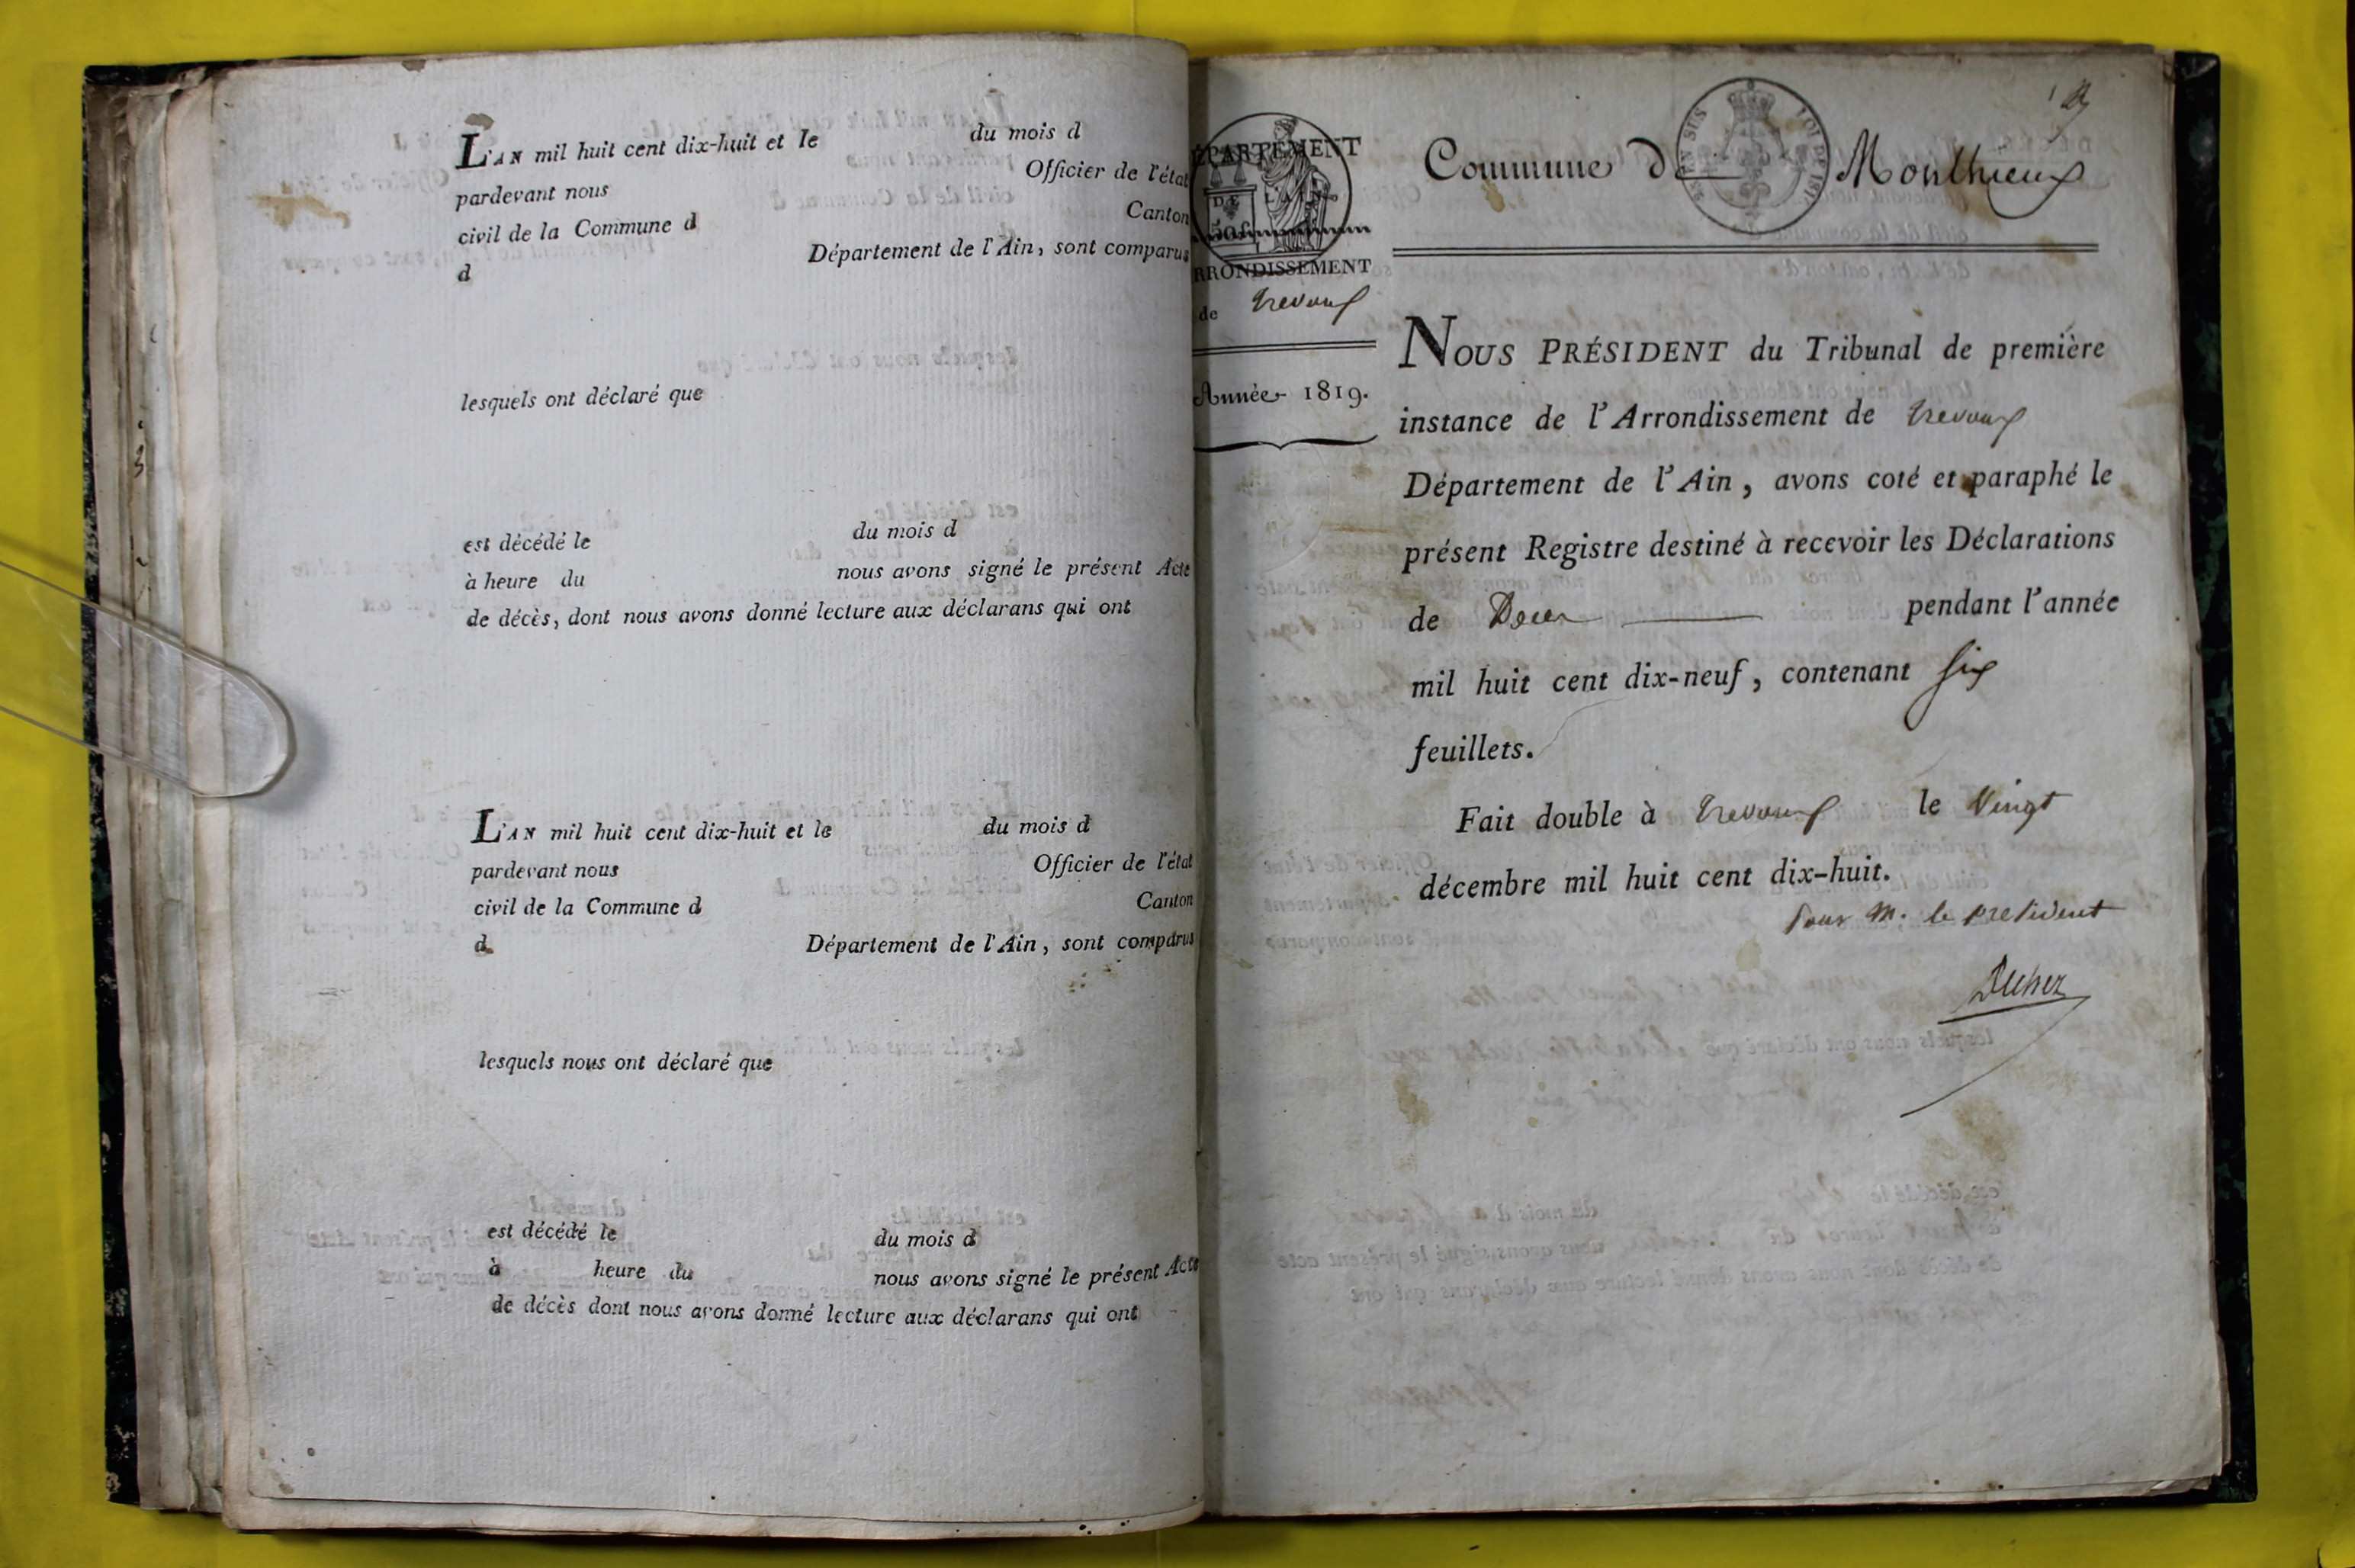 L'AN mil huit cent dix-huit et le du mois d
pardevant nous Officier de l'état
civil de la Commune d Canton
d Département de l'Ain, sont comparus
lesquels ont déclaré que
est décédé le du mois d
à heure du nous avons signé le présent Acte
de décès, dont nous avons donné lecture aux déclarans qui ont
L'AN mil huit cent dix-huit et le du mois d
pardevant nous Officier de l'état
civil de la Commune d Canton
d Département de l'Ain, sont comparus
lesquels nous ont déclaré que
est décédé le du mois d
à heure du nous avons signé le présent Acte
de décès dont nous avons donné lecture aux déclarans qui ont
ÉPARTEMENT
DE L'AIN
RRONDISSEMENT
de Trevoux
Année 1819.
Commune d Monthieux
NOUS PRÉSIDENT du Tribunal de première
instance de l'Arrondissement de Trevoux
Département de l'Ain, avons coté et paraphé le
présent Registre destiné à recevoir les Déclarations
de Deces pendant l'année
mil huit cent dix-neuf, contenant six
feuillets.
Fait double à Trevoux le Vingt
décembre mil huit cent dix-huit.
Pour M. le president